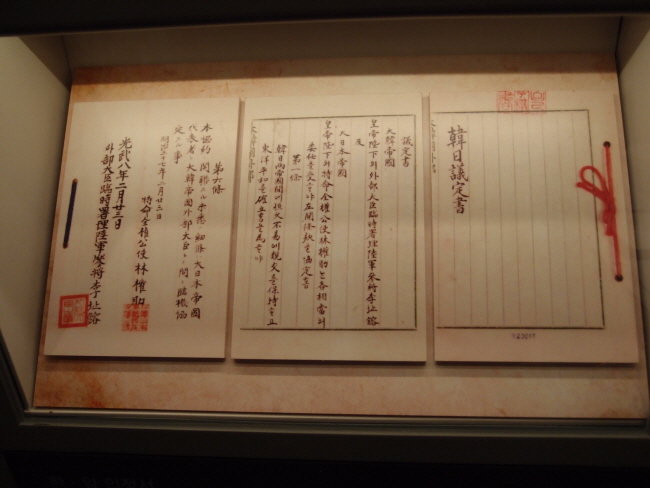 韓日議定書
議定書
大韓帝國
皇帝陛下의外部大臣臨時署理陸軍參將李址鎔
及
大日本帝國
皇帝陛下의特命全權公使林權助는各相當히
委任을受ᄒᆞ야左開條款을協定홈
第一條
韓日兩帝國間에恒久不易에親交를保持ᄒᆞ고
東洋平和를確立홈을爲ᄒᆞ야
第六條
本協約ニ關聯スル未悉ノ細條ハ大日本帝國
代表者ト大韓帝國外部大臣トノ間ニ臨機協
定スル事
明治三十七年二月廿三日
特命全權公使林權助
光武八年二月廿三日
外部大臣臨時署理陸軍參將李址鎔